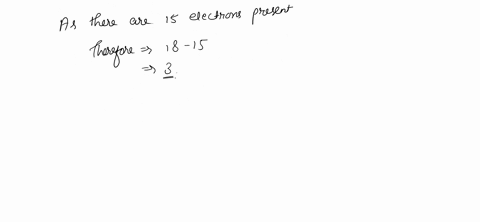 As there are 15 electrons present
Therefore ⇒ 18-15
⇒ 3.